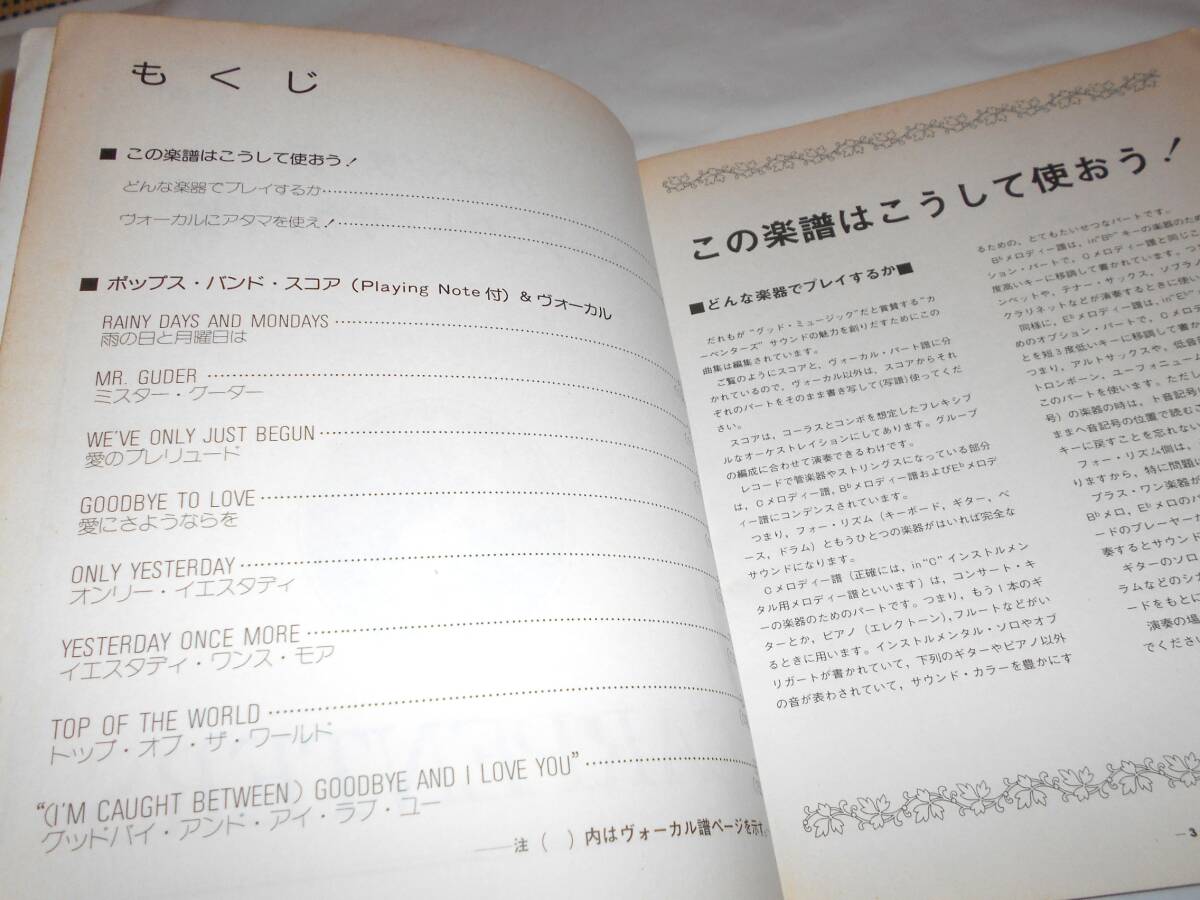 もくじ
■ この楽譜はこうして使おう！
どんな楽器でプレイするか
ヴォーカルにアタマを使え！
■ ポップス・バンド・スコア（Playing Note 付）& ヴォーカル
RAINY DAYS AND MONDAYS
雨の日と月曜日は
MR. GUDER
ミスター・グーダー
WE'VE ONLY JUST BEGUN
愛のプレリュード
GOODBYE TO LOVE
愛にさようならを
ONLY YESTERDAY
オンリー・イエスタディ
YESTERDAY ONCE MORE
イエスタディ・ワンス・モア
TOP OF THE WORLD
トップ・オブ・ザ・ワールド
“(I'M CAUGHT BETWEEN) GOODBYE AND I LOVE YOU”
グッドバイ・アンド・アイ・ラブ・ユー
——注（　）内はヴォーカル譜ページを示す。
この楽譜はこうして使おう！
■どんな楽器でプレイするか■
だれもが“グッド・ミュージック”だと賞賛する“カ
ーペンターズ”サウンドの魅力を創りだすためにこの
曲集は編集されています。
ご覧のようにスコアと、ヴォーカル・パート譜に分
かれているので、ヴォーカル以外は、スコアからそれ
ぞれのパートをそのまま書き写して(写譜)使ってくだ
さい。
スコアは、コーラスとコンボを想定したフレキシブ
ルなオーケストレイションにしてあります。グループ
の編成に合わせて演奏できるわけです。
レコードで管楽器やストリングスになっている部分
は、Cメロディー譜，B♭メロディー譜およびE♭メロデ
ィー譜にコンデンスされています。
つまり、フォー・リズム（キーボード、ギター、ベ
ース、ドラム）ともうひとつの楽器がはいれば完全な
サウンドになります。
Cメロディー譜（正確には、in“C”インストルメン
タル用メロディー譜といいます）は、コンサート・キ
ーの楽器のためのパートです。つまり、もう1本のギ
ターとか，ピアノ（エレクトーン），フルートなどがい
るときに用います。インストルメンタル・ソロやオブ
リガートが書かれていて、下列のギターやピアノ以外
の音が表わされていて，サウンド・カラーを豊かにす
るための、とてもたいせつなパートです。
B♭メロディー譜は、in“B♭”キーの楽器のため
ション・パートで、Cメロディー譜と同じこ
度高いキーに移調して書かれています。つま
ンペットや、テナー・サックス、ソプラノ
クラリネットなどが演奏するときに使い
同様に、E♭メロディー譜は、in“E♭”
めのオプション・パートで、Cメロデ
とを短3度低いキーに移調して書か
つまり、アルトサックスや、低音
トロンボーン、ユーフォニューム
このパートを使います。ただし
号）の楽器の時は、ト音記号
ままヘ音記号の位置で読むこ
キーに戻すことを忘れない
フォー・リズム側は、
りますから、特に問題
プラス・ワン楽器が
B♭メロ，E♭メロのパ
ードのプレーヤーが
奏するとサウンド
ギターのソロ
ラムなどのシカ
ードをもとに
演奏の場
でくださ
—3